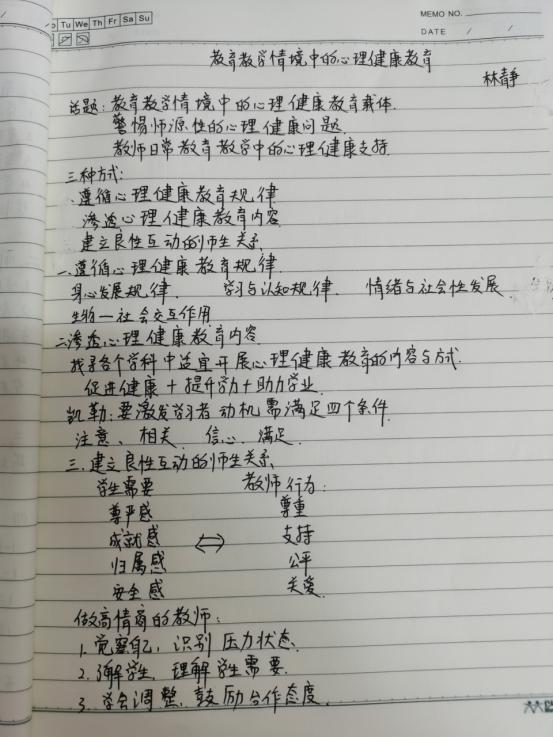 Tu We Th Fr Sa Su
MEMO NO.
DATE / /
教育教学情境中的心理健康教育
林静
话题:教育教学情境中的心理健康教育载体.
警惕师源性的心理健康问题.
教师日常教育教学中的心理健康支持.
三种方式:
遵循心理健康教育规律
渗透心理健康教育内容
建立良性互动的师生关系
一.遵循心理健康教育规律.
身心发展规律. 学习与认知规律. 情绪与社会性发展
生物—社会交互作用
二.渗透心理健康教育内容
找寻各个学科中适宜开展心理健康教育的内容与方式.
促进健康+提升学力+助力学业
凯勒:要激发学习者动机需满足四个条件
注意、相关 信心 满足
三.建立良性互动的师生关系
学生需要 教师行为:
尊严感 尊重
成就感 ⇔ 支持
归属感 公平
安全感 关爱
做高情商的教师:
1.觉察自己,识别压力状态
2.了解学生,理解学生需要.
3.学会调整,鼓励合作态度.